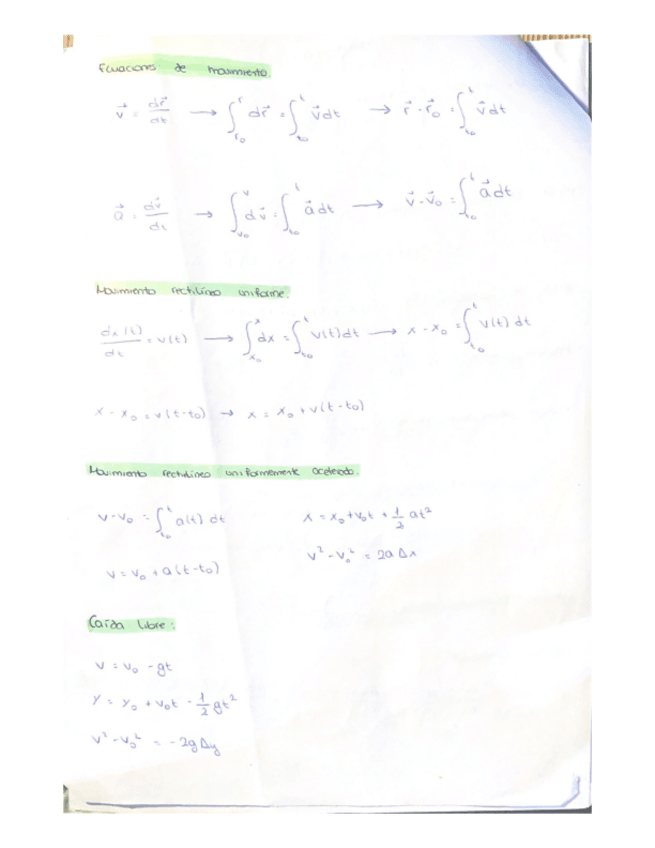 Ecuaciones de movimiento.
v⃗ = dr⃗/dt → ∫_{r₀}^{r} dr⃗ = ∫_{t₀}^{t} v⃗ dt → r⃗ - r⃗₀ = ∫_{t₀}^{t} v⃗ dt
a⃗ = dv⃗/dt → ∫_{v₀}^{v} dv⃗ = ∫_{t₀}^{t} a⃗ dt → v⃗ - v⃗₀ = ∫_{t₀}^{t} a⃗ dt
Movimiento rectilíneo uniforme.
dx(t)/dt = v(t) → ∫_{x₀}^{x} dx = ∫_{t₀}^{t} v(t) dt → x - x₀ = ∫_{t₀}^{t} v(t) dt
x - x₀ = v(t-t₀) → x = x₀ + v(t-t₀)
Movimiento rectilíneo uniformemente acelerado.
v-v₀ = ∫_{t₀}^{t} a(t) dt
v = v₀ + a(t-t₀)
x = x₀ + v₀t + 1/2 at²
v² - v₀² = 2a Δx
Caída libre:
v = v₀ - gt
y = y₀ + v₀t - 1/2 gt²
v² - v₀² = -2g Δy